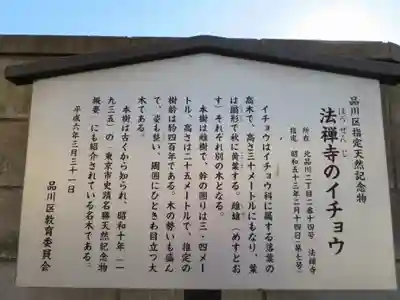 品川区指定天然記念物
ほうぜんじ
法禅寺のイチョウ
所在 北品川二丁目二番十四号 法禅寺
指定 昭和五十三年二月十四日(第七号)
イチョウはイチョウ科に属する落葉の
高木で、高さ三十メートルにもなり、葉
は扇形で秋に黄葉する。雌雄(めすとお
す)それぞれ別の木となる。
本樹は雌樹で、幹の囲りは三・四メー
トル、高さは二十五メートルで、推定の
樹齢は約四百年である。木の勢いも盛ん
で、姿も整い、周囲にひときわ目立つ大
木である。
本樹は古くから知られ、昭和十年(一
九三五)の「東京市史蹟名勝天然紀念物
概要」にも紹介されている名木である。
平成六年三月三十一日
品川区教育委員会